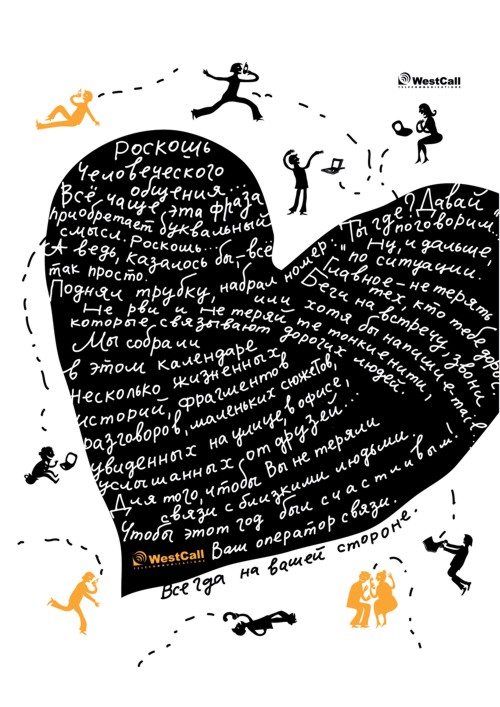 WestCall
TELECOMMUNICATIONS
Роскошь
Человеческого
общения...
Всё чаще эта фраза
приобретает буквальный
смысл. Роскошь...
А ведь, казалось бы, – всё
так просто.
Поднял трубку, набрал номер: "Ты где? Давай
поговорим..."
Ну, и дальше,
по ситуации.
Главное – не терять
тех, кто тебе доро
Беги на встречу, звони
или хотя бы напиши e-mail
Не рви и не теряй те тонкие нити,
которые связывают дорогих людей.
Мы собрали
в этом календаре
несколько жизненных
историй, фрагментов
разговоров, маленьких сюжетов,
увиденных на улице, в офисе,
услышанных от друзей...
Для того, чтобы Вы не теряли
связи с близкими людьми.
Чтобы этот год был счастливым!
Ваш оператор связи.
WestCall
TELECOMMUNICATIONS
Всегда на вашей стороне.